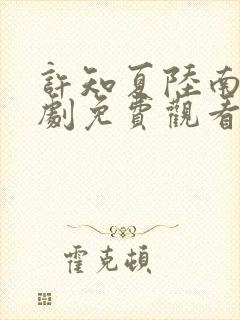 許知夏陸南
劇免費觀看
霍克頓